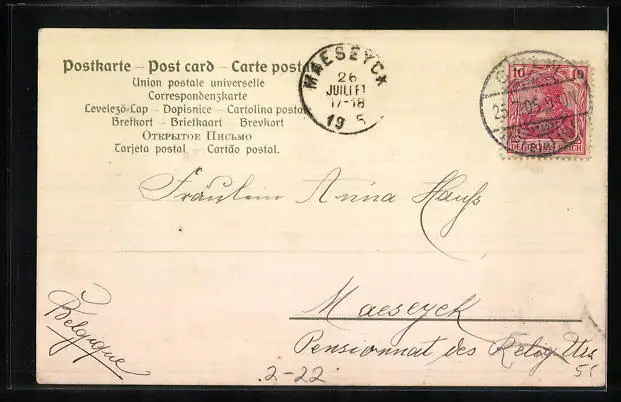 Postkarte – Post card – Carte postale
Union postale universelle
Correspondenzkarte
Levelező-Lap – Dopisnice – Cartolina postale
Brefkort – Briefkaart – Brevkort
Открытое Письмо
Tarjeta postal – Cartão postal.
MAESEYCK
26
JUILLET
17-18
19 5
10 10
DEUTSCHES REICH
25 7 05 9
Fräulein Anna Hauss
Maeseyck
Pensionnat des Relig Urs
Belgique
2-22
5